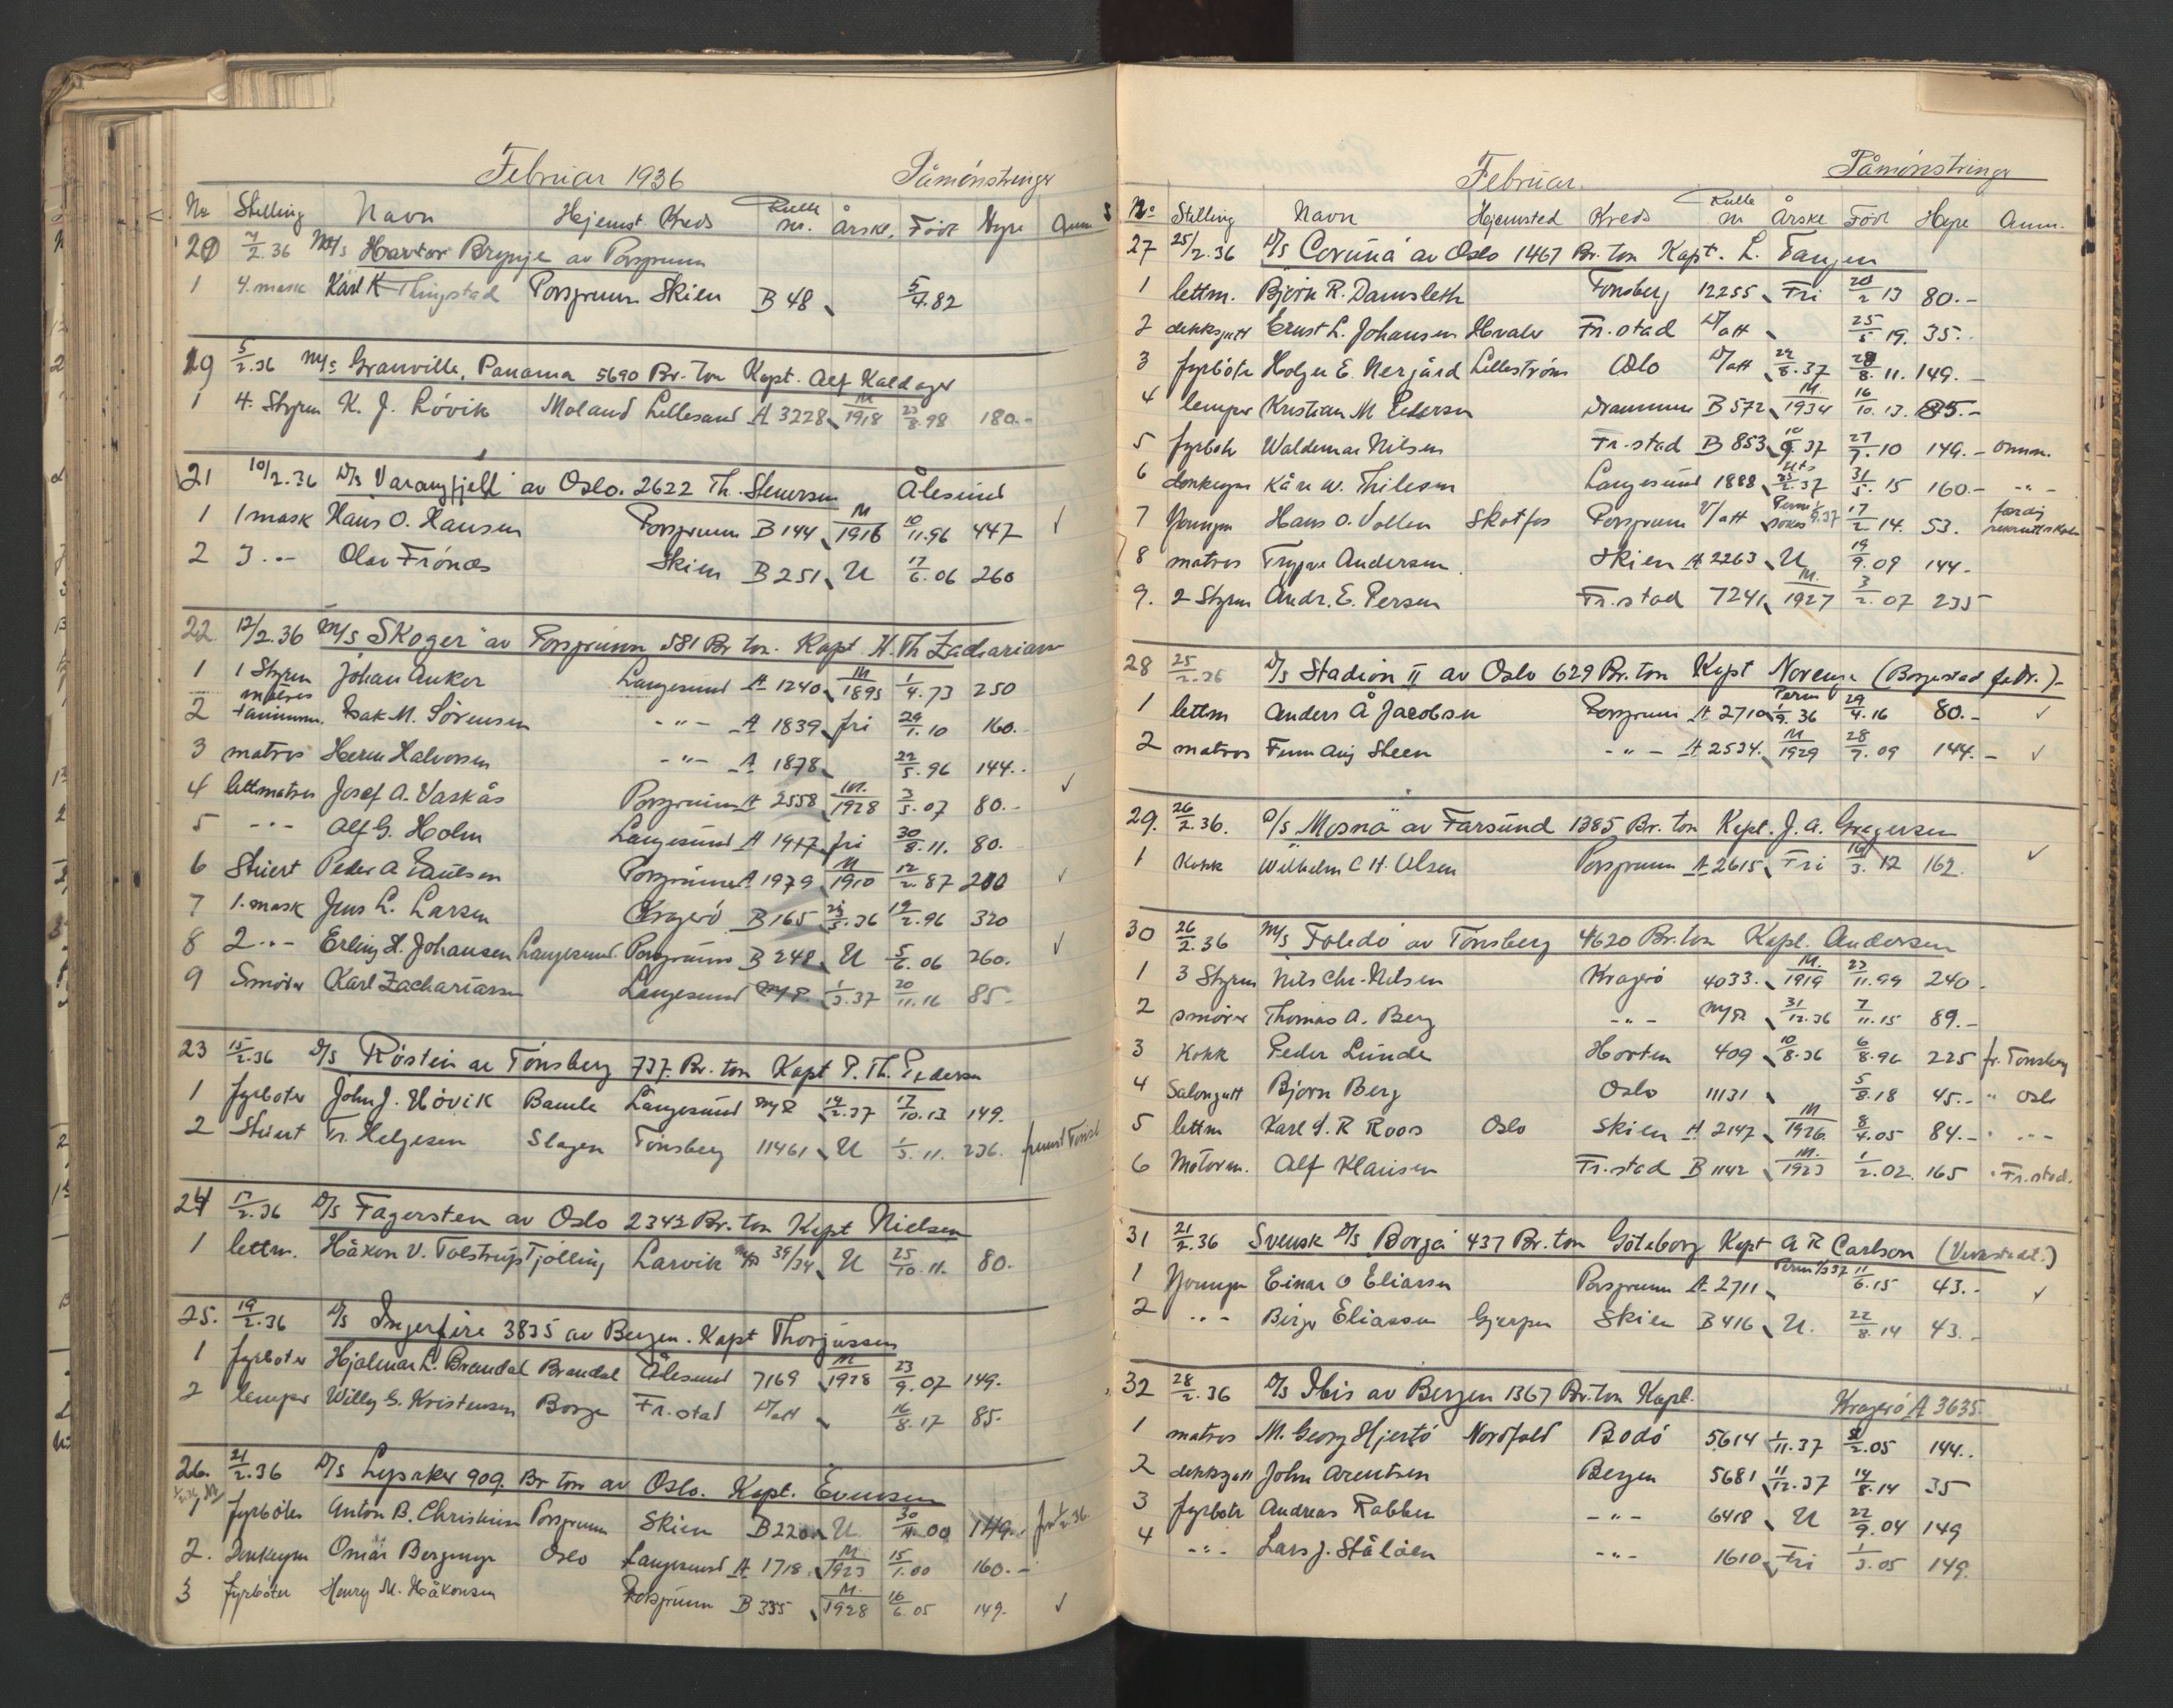 Februar 1936 Påmönstringer
No Stilling Navn Hjemst. Kreds Rulle nr. Årskl. Född Hyre Anm.
20 4/2.36 M/s Havtor Brynje av Porsgrunn
1 4. mask Karl K Thingstad Porsgrunn Skien B 48 5/4.82
19 5/2.36 M/s Granville, Panama 5690 Br. ton Kapt. Alf Kaldager
1 4. Styrm K. J. Lövik Moland Lillesand A 3228 M/1918 23/8.98 180.-
21 10/2.36 D/s Varangfjell av Oslo. 2622 Th. Stenersen Ålesund
1 1 mask Hans O. Hansen Porsgrunn B 144 M/1916 10/11.96 447 ✓
2 3 -"- Olav Frönæs Skien B 251 U 17/6.06 260
22 12/2.36 M/s "Skoger" av Porsgrunn 581 Br ton. Kapt H. Th Zachariassen
1 1 Styrm Johan Anker Langesund A 1240 M/1895 1/4.73 250
2 matros tømmerm. Isak M. Sörensen -"- A 1839 fri 29/1.10 160.
3 matros Herm Halvorsen -"- A 1878 22/5.96 144.-
4 lettmatros Josef A. Vaskås Porsgrunn A 2558 M/1928 3/5.07 80.- ✓
5 -"- Alf G. Holm Langesund A 1917 fri 30/8.11. 80.
6 Stuert Peder A Paulsen Porsgrunn A 1979 M/1910 12/2.87 200 ✓
7 1. mask Jens L. Larsen Kragerö B 165 23/3.36 19/2.96 320
8 2 -"- Erling H. Johansen Langesund Porsgrunn B 248 U 5/6.06 260. ✓
9 Smörer Karl Zachariassen Langesund Ny R. 1/3.37 20/11.16 85.-
23 15/2.36 D/s Röstein av Tönsberg 737. Br. ton Kapt P. Th. Pedersen
1 fyrböter John J. Hövik Bamble Langesund Ny R 14/2.37 17/10.13 149.
2 Stuert Fr. Helgesen Slagen Tönsberg 11461 U 1/3.11. 236. fremst Tönsb
24 17/2.36 D/s Fagersten av Oslo 2342 Br. ton Kapt Nielsen
1 lettm. Håkon V. Tolstrup Tjölling Larvik Ny R 39/34 U 25/10.11. 80.
25. 19/2.36 D/s Ingerfire 3835 av Bergen. Kapt Thorjussen
1 fyrböter Hjalmar L. Brandal Brandal Ålesund 7169 M/1928 23/9.07 149.
2 lemper Willy G. Kristensen Borge Fr. stad U/att 16/8.17 85.
26. 21/2.36 D/s Lysaker 909. Br ton av Oslo. Kapt. Evensen
1 fyrböter Anton B. Christensen Porsgrunn Skien B 220 U. 30/11.00 149.- fra 1/2.36.
2. Donkeym Omar Bergmyr Oslo Langesund A 1718 M/1923 15/1.00 160.-
3 fyrböter Henry M. Håkonsen Porsgrunn B 335 M/1928 16/6.05 149. ✓
Februar. Påmönstringer
No Stilling Navn Hjemsted Kreds Rulle nr Årskl Född Hyre Anm.
27 25/2.36 D/s "Coruña" av Oslo 1467 Br. ton Kapt. L. Tangen
1 lettm. Björn R. Damsleth Tönsberg 12255 Fri 20/2 13 80.-
2 dekksgutt Ernst L. Johansen Hvaler Fr. stad U/att 25/5 19. 35.-
3 fyrböter Holger E. Nergård Lilleström Oslo U/att 22/8.37 28/8.11. 149.-
4 lemper Kristian M Pedersen Drammen B 572 M/1934 16/10.13. 85.-
5 fyrböter Waldemar Nilsen Fr. stad B 853 10/9.37 27/7.10 149.- Omm.
6 donkeym Kåre W. Thilesen Langesund 1888 Uts 25/2.37 31/5.15 160.- -"-
7 Youngm Hans O. Vollen Skotfos Porsgrunn U/att 17/2 14. 53.
8 matros Trygve Andersen Skien A 2263 U 19/9.09 144.-
9. 2 Styrm Andr. E. Persen Fr. stad 7241 M./1927 3/2.07 235
28 25/2.36 D/s Stadion II av Oslo 629 Br. ton Kapt
1 lettm Anders Å Jacobsen Porsgrunn A 2710 Perm 1/9.36 29/4.16 80.- ✓
2 matros Finn Aug Steen -"- A 2534. M/1929 28/7.09 144.- ✓
29. 26/2.36. D/s "Mosnä" av Farsund 1385 Br. ton Kapt. J. A. Gregersen
1 Kokk Wilhelm C H. Olsen Porsgrunn A 2615 Fri 16/3.12 162. ✓
30 26/2.36 M/s "Toledo" av Tönsberg 4620 Br. ton Kapt. Andersen
1 3 Styrm Nils Chr. Nilsen Kragerö 4033. M./1919 23/11.99 240.
2 smörer Thomas A. Berg -"- Ny R 31/12.36 7/11.15 89.-
3 Kokk Peder Lunde Horten 409 10/8.36 6/8.96 225 fr. Tönsberg
4 Salongutt Björn Berg Oslo 11131 5/8.18 45.- " Oslo
5 lettm Karl S. R Roos Oslo Skien A 2147 M/1926. 8/4.05 84.- " -"-
6 Motorm. Alf Klausen Fr. stad B 1142 M./1923 1/2.02. 165 " Fr. stad.
31 21/2.36 Svensk D/s Borgå 437 Br. ton Göteborg Kapt A R Carlson
1 Youngm Einar O Eliassen Porsgrunn A 2711 Perm 1/3 37 11/6.15 43.- ✓
2 -"- Birger Eliassen Gjerpen Skien B 416 U. 22/8.14 43.-
32 28/2.36 D/s Ibis av Bergen 1367 Br. ton Kapt. Kragerö A 3635.
1 matros M. Georg Hjertö Nordfold Bodö 5614 1/11.37 2.05 144.-
2 dekksgutt John Arentsen Bergen 5681 11/12.37 14/8.14 35
3 fyrböter Andreas Rabben -"- 6418 U 22/9.04 149
4 -"- Lars J. Stålöen -"- 1610 Fri 1/3.05 149.